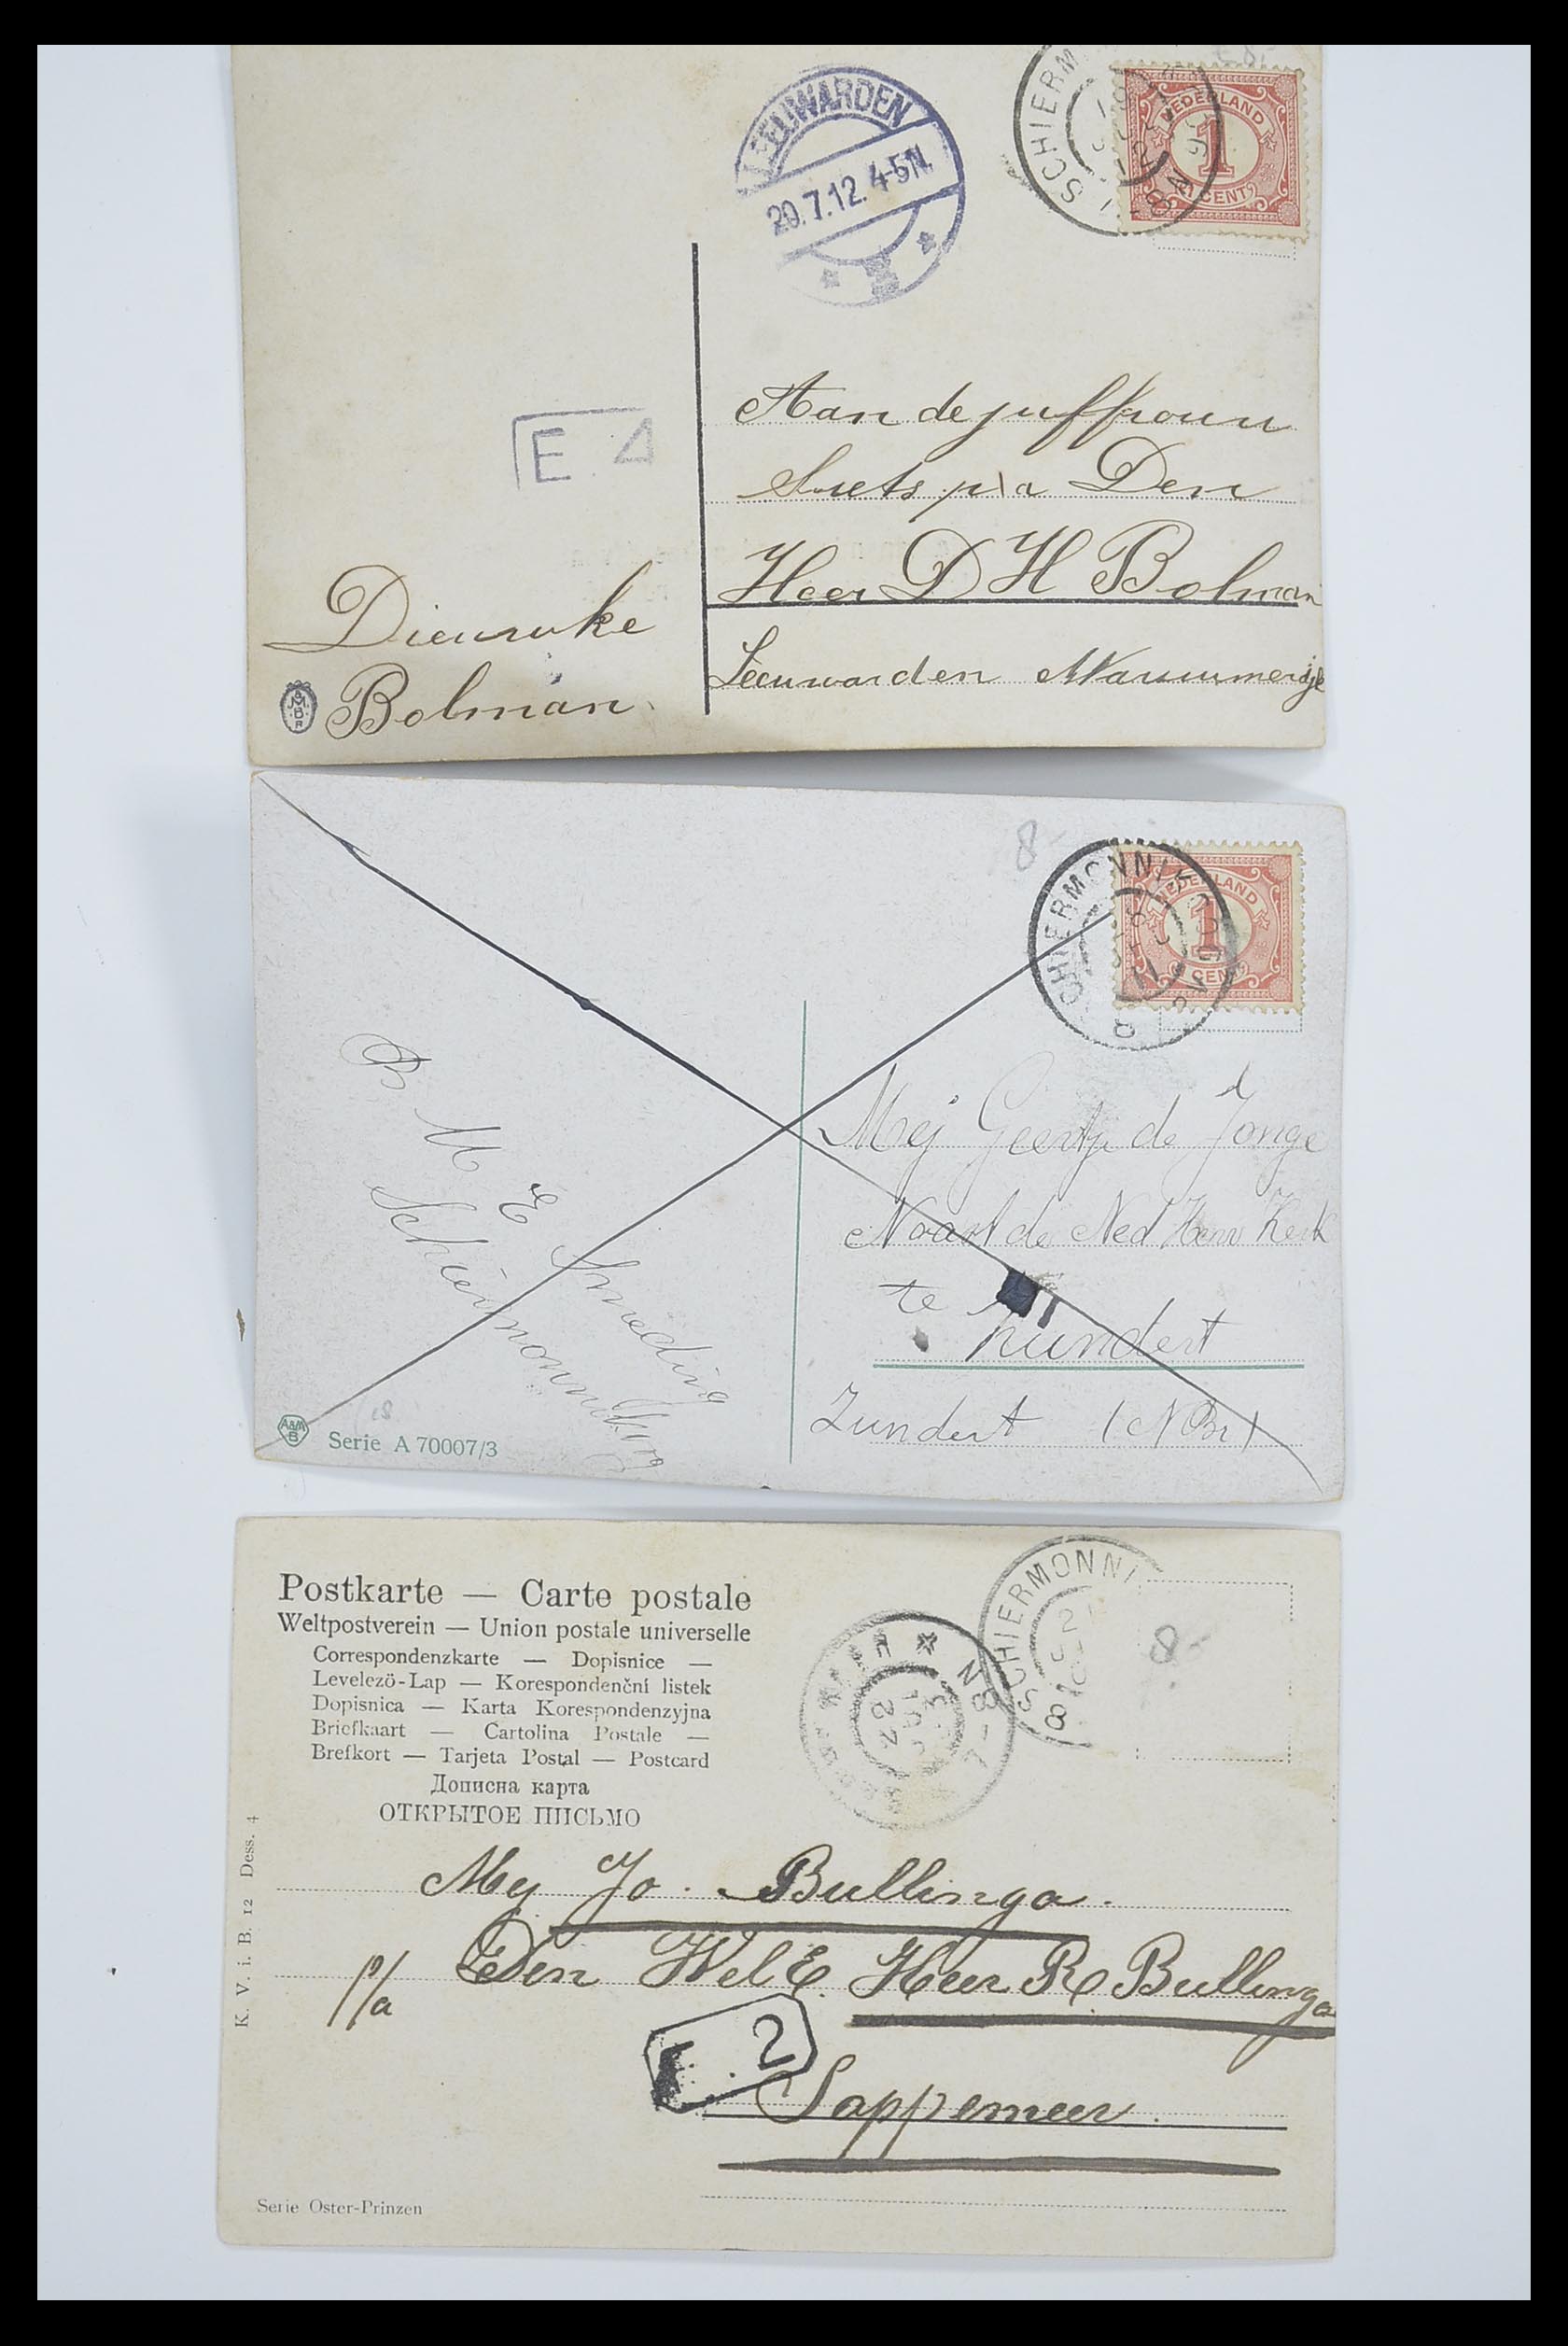 LEEUWARDEN
20.7.12.4-5N.
SCHIERM
7-8N
NEDERLAND
1
CENT
E 4
Aan de juffrouw
Smets p\a Den
Heer D H Bolman
Leeuwarden
Dieuwke
Bolman
8-
SCHIERMONNIK
NEDERLAND
1
CENT
Mej Geertje de Jonge
Naast de Ned Herv Kerk
te
hundert
Zundert (NBr)
B M E Smeding
Schiermonnikoog
AMB
Serie A 70007/3
Postkarte — Carte postale
Weltpostverein — Union postale universelle
Correspondenzkarte — Dopisnice —
Levelezö-Lap — Korespondenční listek
Dopisnica — Karta Korespondenzyjna
Briefkaart — Cartolina Postale —
Brefkort — Tarjeta Postal — Postcard
Дописна карта
ОТКРЫТОЕ ПИСЬМО
SCHIERMONNI
7-8N
8-
Mej Jo. Bullinga.
p/a Den WelE. Heer R Bullinga
2
Sappemeer.
K. V. i. B. 12 Dess. 4
Serie Oster-Prinzen